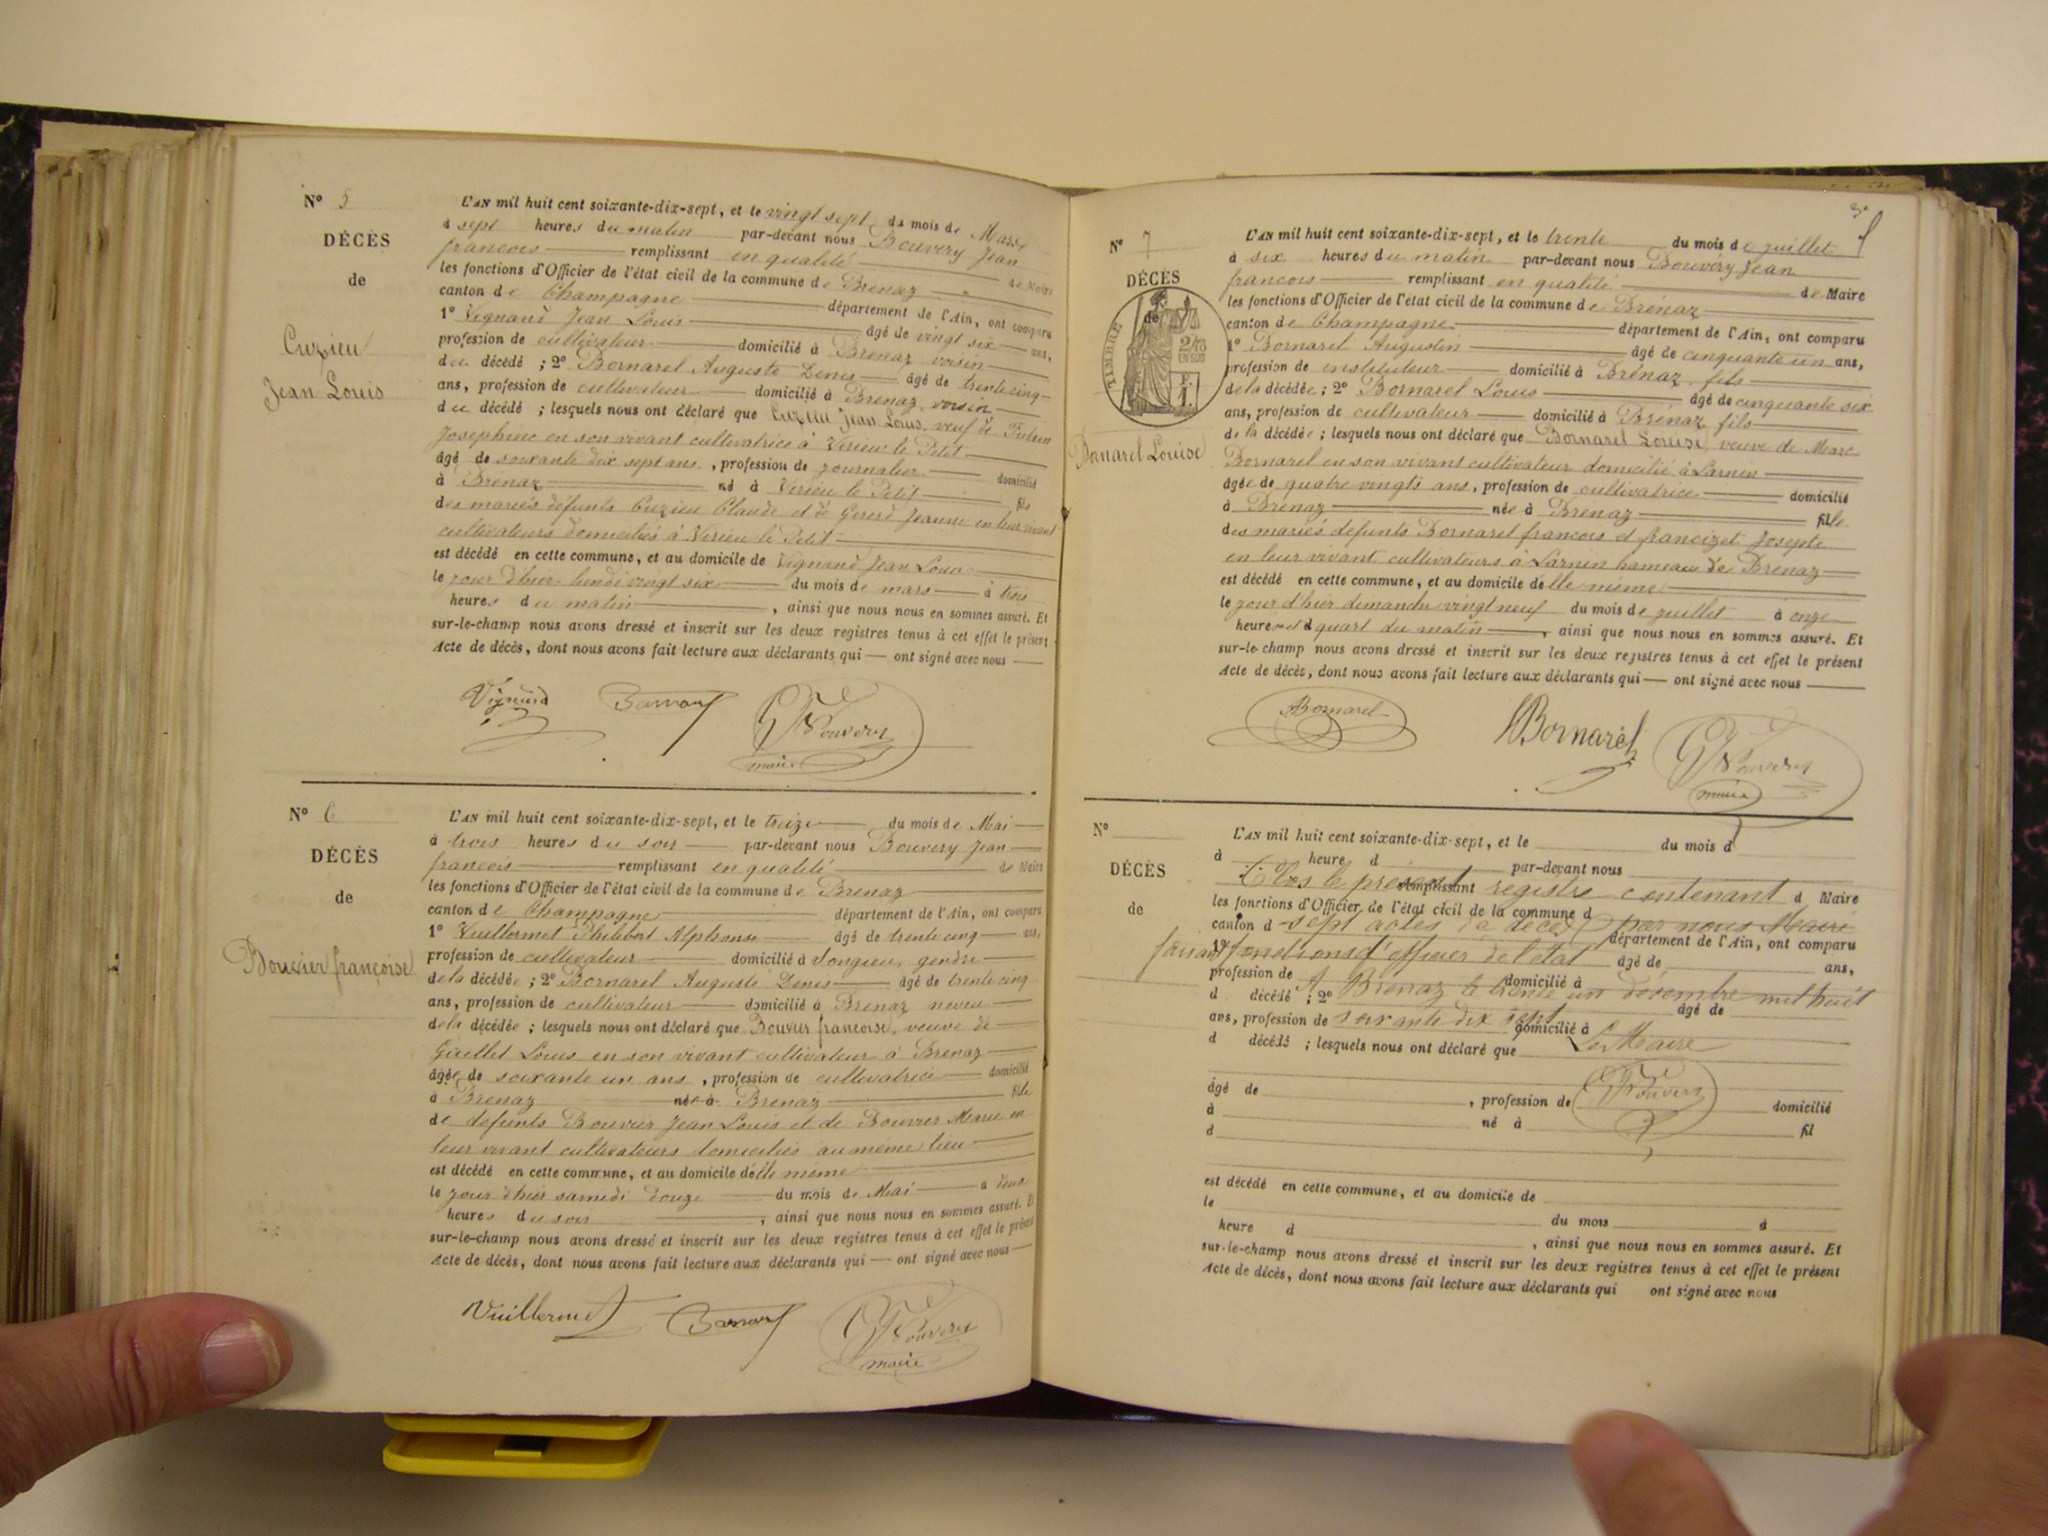 N° 5
DÉCÈS
de
Cuzieu
Jean Louis
L'AN mil huit cent soixante-dix-sept, et le vingt sept du mois de Mars
à sept heures du matin par-devant nous Bouvery Jean
francois remplissant en qualité de Maire
les fonctions d'Officier de l'état civil de la commune de Brenaz
canton de Champagne département de l'Ain, ont comparu
1° Vignand Jean Louis âgé de vingt six ans,
profession de cultivateur domicilié à Brenaz voisin
du décédé ; 2° Bornarel Auguste Denis âgé de trente cinq
ans, profession de cultivateur domicilié à Brenaz voisin
du décédé ; lesquels nous ont déclaré que Cuzieu Jean Louis, veuf de
Josephine en son vivant cultivatrice à Virieu le Petit
âgé de soixante dix sept ans, profession de journalier domicilié
à Brenaz né à Virieu le Petit fils
des mariés défunts Cuzieu Claude et de Jeanne en leur vivant
cultivateurs domiciliés à Virieu le Petit
est décédé en cette commune, et au domicile de Vignand Jean Louis
le jour d'hier lundi vingt six du mois de mars à trois
heures du matin, ainsi que nous nous en sommes assuré. Et
sur-le-champ nous avons dressé et inscrit sur les deux registres tenus à cet effet le présent
Acte de décès, dont nous avons fait lecture aux déclarants qui — ont signé avec nous
Vignand Bornarel Bouvery
maire
N° 6
DÉCÈS
de
Bouvier françoise
L'AN mil huit cent soixante-dix-sept, et le treize du mois de Mai
à trois heures du soir par-devant nous Bouvery Jean
francois remplissant en qualité de Maire
les fonctions d'Officier de l'état civil de la commune de Brenaz
canton de Champagne département de l'Ain, ont comparu
1° Vuillermet Philibert Alphonse âgé de trente cinq ans,
profession de cultivateur domicilié à Songieu, gendre
de la décédée ; 2° Bornarel Auguste Denis âgé de trente cinq
ans, profession de cultivateur domicilié à Brenaz neveu
de la décédée ; lesquels nous ont déclaré que Bouvier francoise, veuve de
Louis en son vivant cultivateur à Brenaz
âgée de soixante un ans, profession de cultivatrice domicilié
à Brenaz née à Brenaz fille
de defunts Bouvier Jean Louis et de Bouvier Marie en
leur vivant cultivateurs domiciliés au même lieu
est décédé en cette commune, et au domicile d'elle même
le jour d'hier samedi douze du mois de Mai à deux
heures du soir, ainsi que nous nous en sommes assuré. Et
sur-le-champ nous avons dressé et inscrit sur les deux registres tenus à cet effet le présent
Acte de décès, dont nous avons fait lecture aux déclarants qui — ont signé avec nous
Vuillermet Bornarel Bouvery
maire
N° 7
DÉCÈS
de
TIMBRE
2/10
EN SUS
F.
1.
Bornarel Louise
L'AN mil huit cent soixante-dix-sept, et le trente du mois de juillet
à six heures du matin par-devant nous Bouvéry Jean
francois remplissant en qualité de Maire
les fonctions d'Officier de l'état civil de la commune de Brénaz
canton de Champagne département de l'Ain, ont comparu
1° Bornarel Augustin âgé de cinquante un ans,
profession de instituteur domicilié à Brénaz fils
de la décédée ; 2° Bornarel Louis âgé de cinquante six
ans, profession de cultivateur domicilié à Brénaz fils
de la décédée ; lesquels nous ont déclaré que Bornarel Louise, veuve de Marc
Bornarel en son vivant cultivateur domicilié à Larnin
âgée de quatre vingts ans, profession de cultivatrice domicilié
à Brénaz née à Brenaz fille
des mariés defunts Bornarel francois et francizet Josepte
en leur vivant cultivateurs à Larnin hameau de Brenaz
est décédé en cette commune, et au domicile d'elle même
le jour d'hier dimanche vingt neuf du mois de juillet à onze
heures et quart du matin, ainsi que nous nous en sommes assuré. Et
sur-le-champ nous avons dressé et inscrit sur les deux registres tenus à cet effet le présent
Acte de décès, dont nous avons fait lecture aux déclarants qui — ont signé avec nous
ABornarel LBornarel Bouvery
maire
N°
DÉCÈS
de
L'AN mil huit cent soixante-dix-sept, et le du mois d
à heure d par-devant nous
Clos le présent registre contenant
remplissant d Maire
les fonctions d'Officier de l'état civil de la commune d
sept actes de décès par nous Maire
canton d département de l'Ain, ont comparu
faisant fonctions d'officier de l'état
1° âgé de ans,
profession de domicilié à
A Brénaz le trente un décembre mil huit
d décédé ; 2° âgé de
soixante dix sept
ans, profession de domicilié à
Le Maire
d décédé ; lesquels nous ont déclaré que
Bouvery
âgé de , profession de domicilié
à né à fil
d
est décédé en cette commune, et au domicile de
le du mois à
heure d , ainsi que nous nous en sommes assuré. Et
sur-le-champ nous avons dressé et inscrit sur les deux registres tenus à cet effet le présent
Acte de décès, dont nous avons fait lecture aux déclarants qui ont signé avec nous